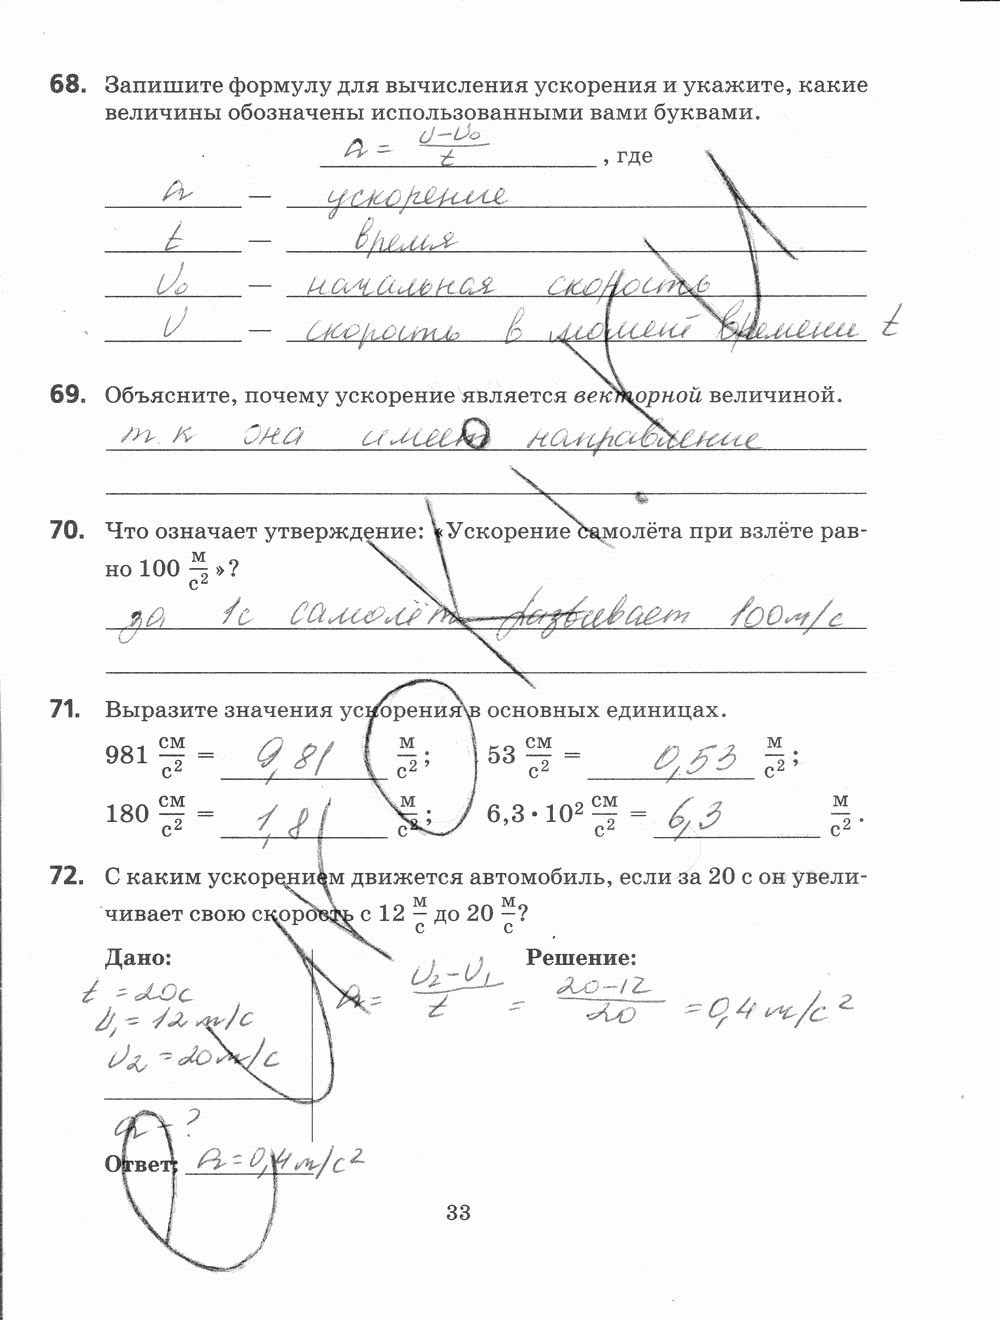 68. Запишите формулу для вычисления ускорения и укажите, какие
величины обозначены использованными вами буквами.
a = (υ–υ₀)/t , где
a — ускорение
t — время
υ₀ — начальная скорость
υ — скорость в момент времени t
69. Объясните, почему ускорение является векторной величиной.
т.к она имеет направление
70. Что означает утверждение: «Ускорение самолёта при взлёте рав-
но 100 м/с² »?
за 1с самолёт развивает 100м/с
71. Выразите значения ускорения в основных единицах.
981 см/с² = 9,81 м/с² ; 53 см/с² = 0,53 м/с² ;
180 см/с² = 1,81 м/с² ; 6,3 • 10² см/с² = 6,3 м/с² .
72. С каким ускорением движется автомобиль, если за 20 с он увели-
чивает свою скорость с 12 м/с до 20 м/с?
Дано: Решение:
t = 20с
υ₁ = 12 м/с
υ₂ = 20м/с
a = (υ₂–υ₁)/t = (20–12)/20 = 0,4 м/с²
a – ?
Ответ: a = 0,4 м/с²
33